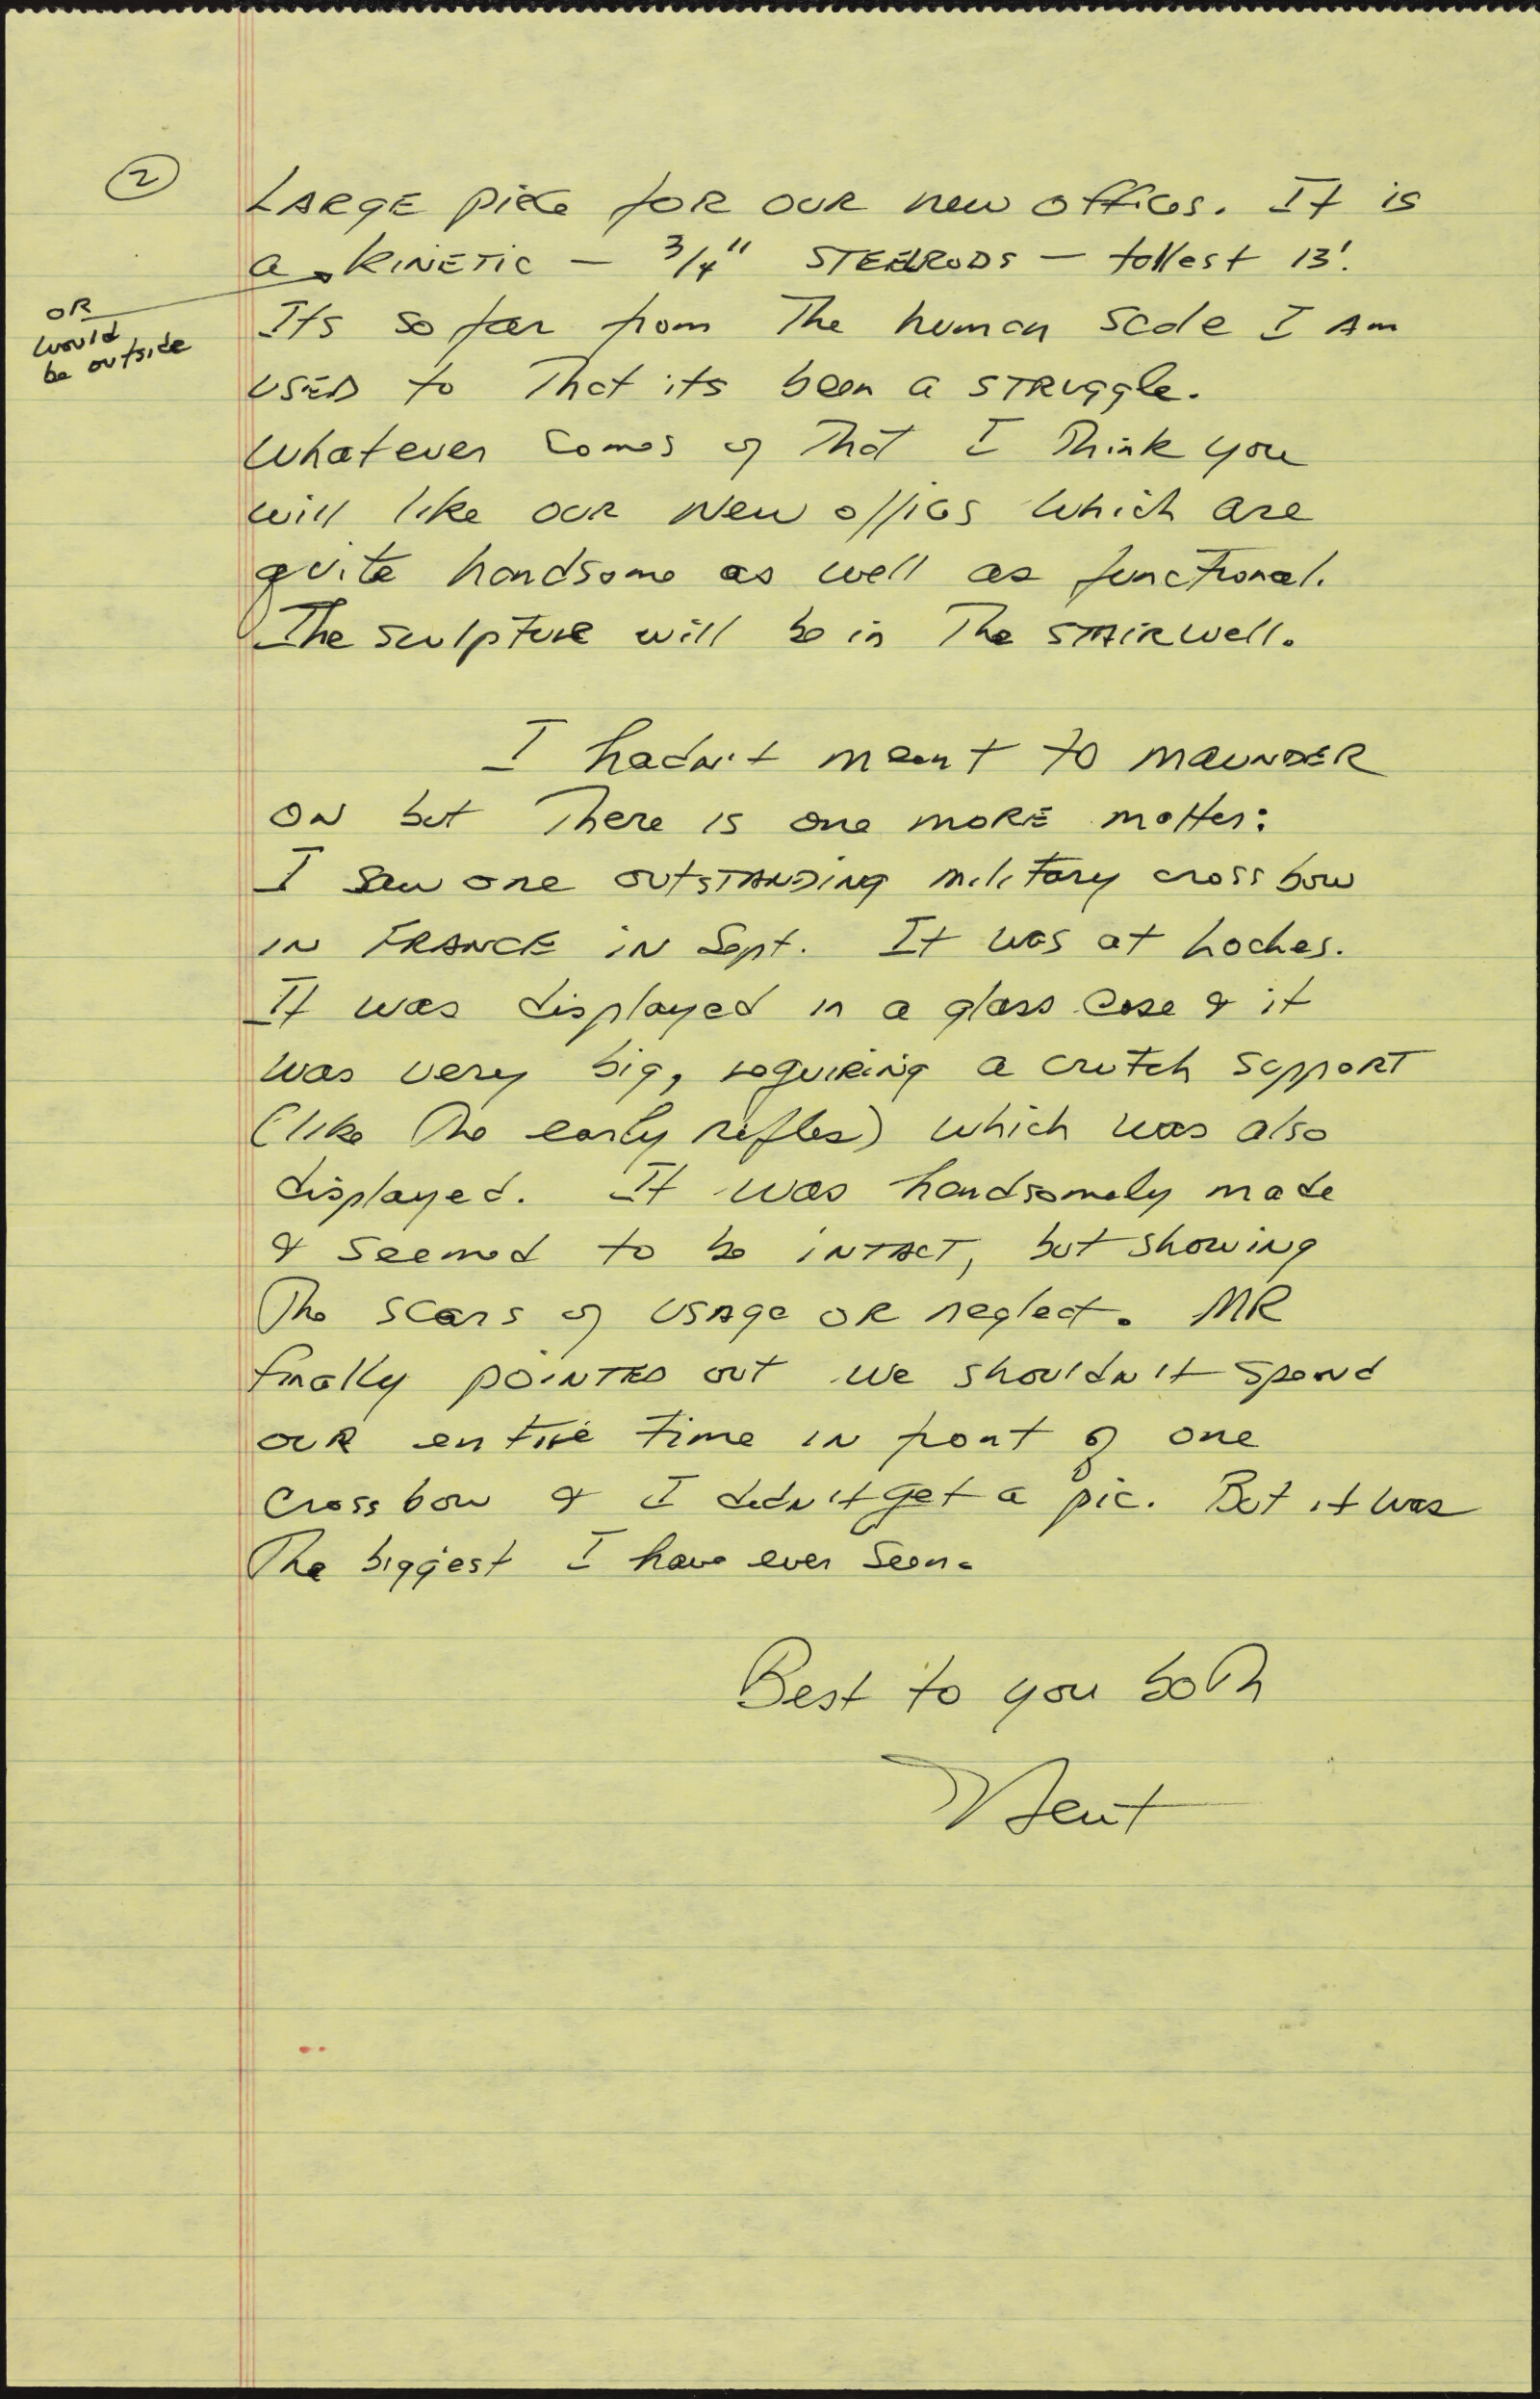 ②
LARGE piece for OUR new offices. It is
a KINETIC — 3/4" STEEL RODS — tallest 13'.
OR
would
be outside
Its so far from The human scale I Am
USED to That its been a STRUggle.
Whatever comes of That I Think you
will like OUR New offices which are
quite handsome as well as functional.
The sculpture will be in The STAIRWell.
I hadn't meant to MAUNDER
ON but There is one MORE matter:
I saw one outSTANDing military crossbow
IN FRANCE IN Sept. It was at Loches.
It was displayed in a glass case & it
was very big, requiring a crutch support
(like The early rifles) which was also
displayed. It was handsomely made
& seemed to be INTACT, but showing
The scars of USAge OR neglect. MR
finally POINTED out we shouldn't spend
OUR entire time IN front of one
crossbow & I didn't get a pic. But it was
The biggest I have ever seen.
Best to you both